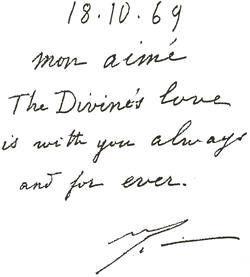 18.10.69
mon aimé
The Divine's love
is with you always
and for ever.